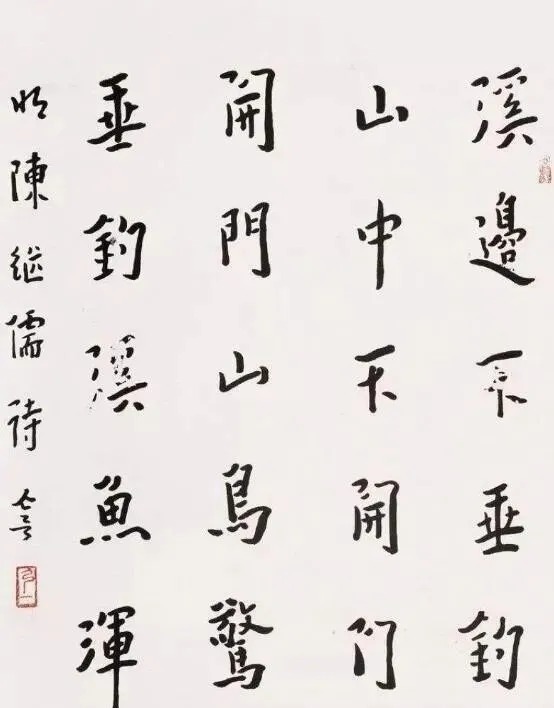 溪邊不垂釣
山中不開門
開門山鳥驚
垂釣溪魚渾
明陳继儒詩